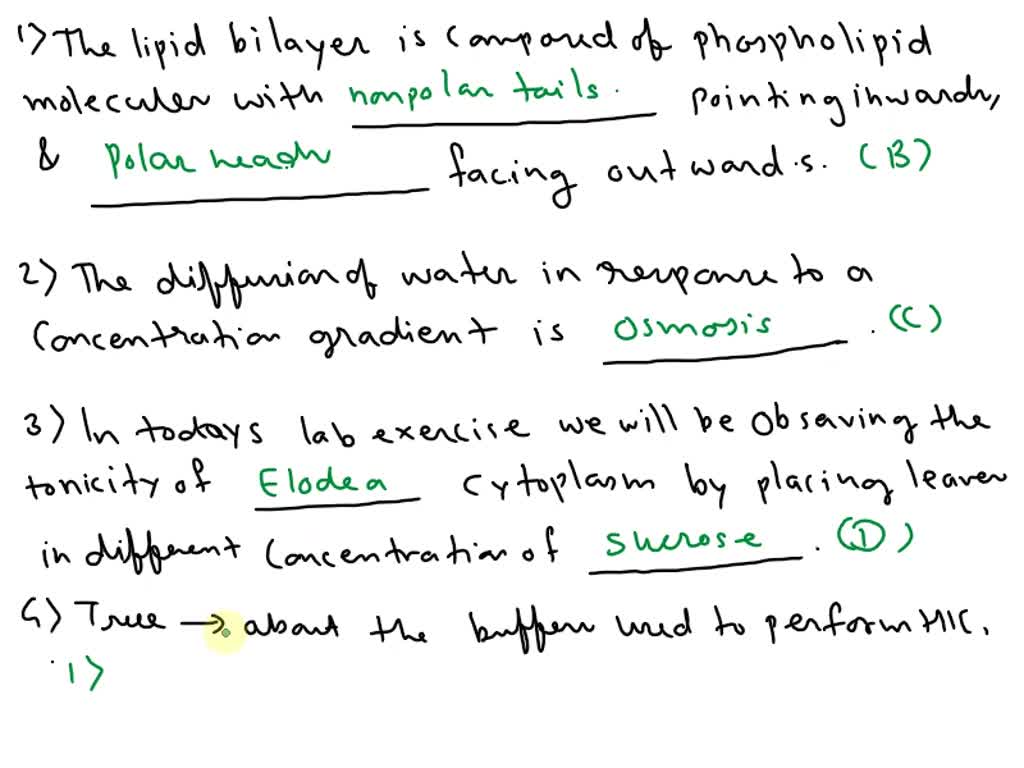 1) The lipid bilayer is composed of phospholipid
molecules with nonpolar tails. pointing inwards,
& Polar heads facing outwards. (B)
2) The diffusion of water in response to a
concentration gradient is osmosis. (C)
3) In todays lab exercise we will be Obsaving the
tonicity of Elodea cytoplasm by placing leaves
in different concentration of sucrose. (D)
4) True → about the buffers used to perform HIC.
1)